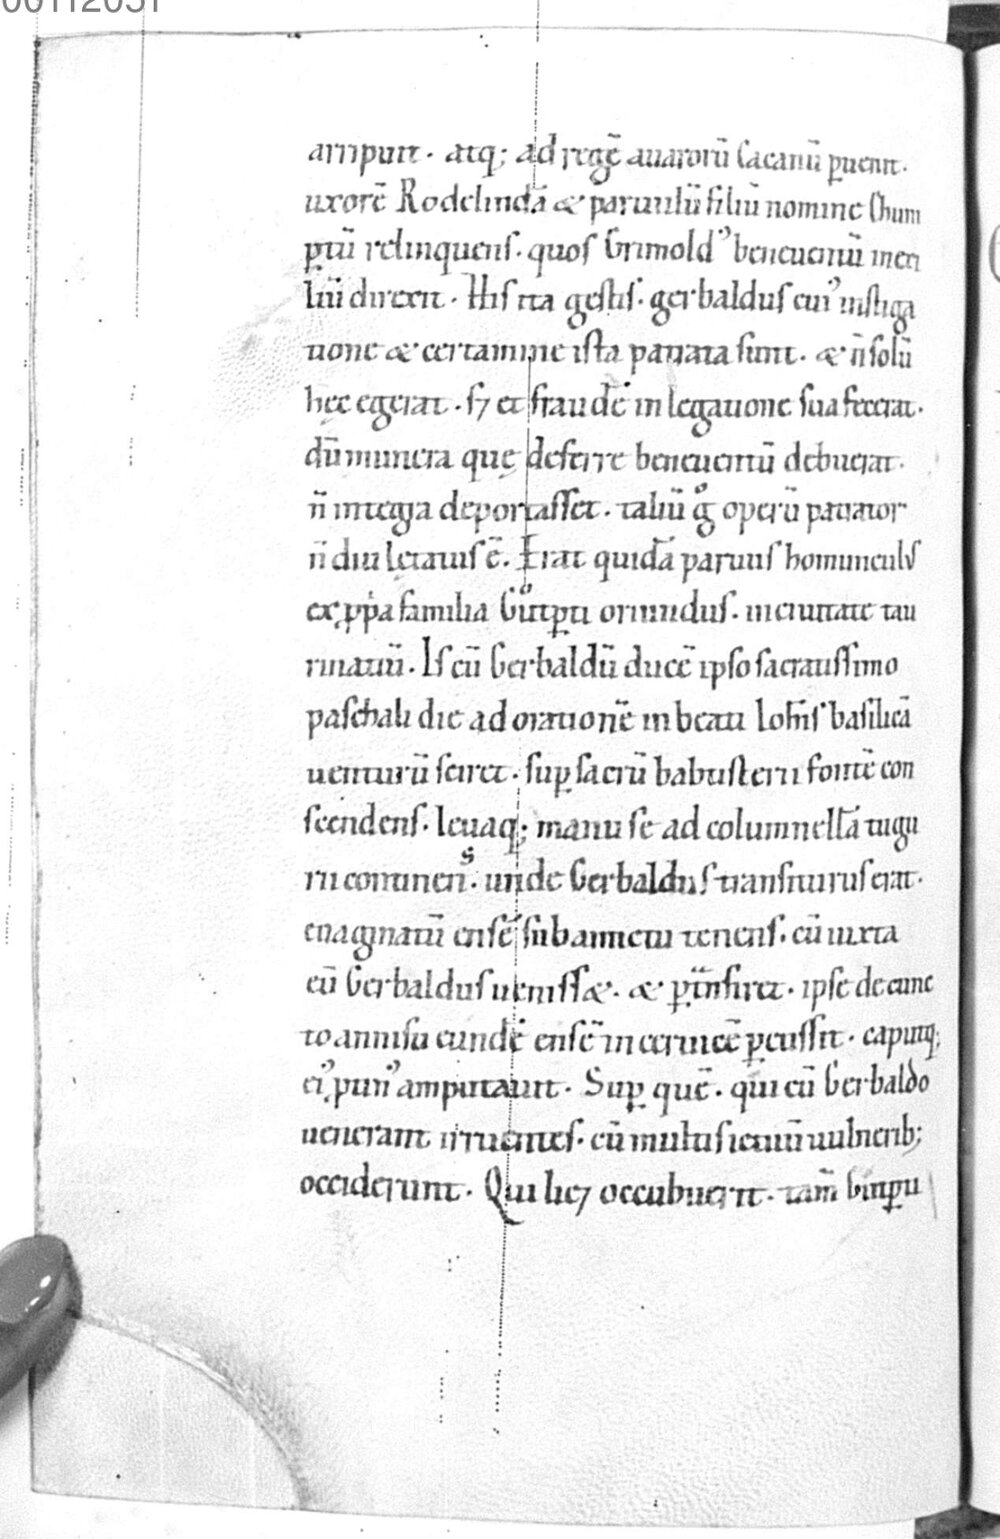 00112051
arripuit. atq; ad regē auarorū Cacanū ꝑuenit.
uxorē Rodelindā & paruulū filiū nomine Chuni
ꝑtū relinquens. quos Grimoldꝰ beneuentū in exi
liū direxit. His ita gestis. gerbaldus cuiꝰ instiga
tione & certamine ista patrata sunt. & ñ solū
hęc egerat. sꝫ et fraudē in legatione sua fecerat.
dū munera quę deferre beneuentū debuerat.
ñ integra deportasset. taliū gͦ operū patrator
ñ diu letatus ē. Erat quidā paruus homunculus
ex ꝓpͥa familia Goꝺ̄ꝑti oriundus. in ciuitate tau
rinatiū. Is cū Gerbaldū ducē ipso sacratissimo
paschali die ad orationē in beati Iohīs basilicā
uenturū sciret. suꝑ sacrū babtisterii fontē con
scendens. leuaq; manu se ad columnellā tugu
rii continenˢ. unde Gerbaldus transiturus erat.
euaginatū ensē sub amictu tenens. cū iuxta
eū Gerbaldus uenisset. & ꝑtͣnsiret. ipse de cunc
to annisu eundē ensē in ceruicē ꝑcussit. caputq;
eiꝰ ꝓtinꝰ amputauit. Suꝑ quē. qui cū Gerbaldo
uenerant irruentes. cū multis ictuū uulnerib;
occiderunt. Qui licꝫ occubuerit. tam̄ Gūtꝑti